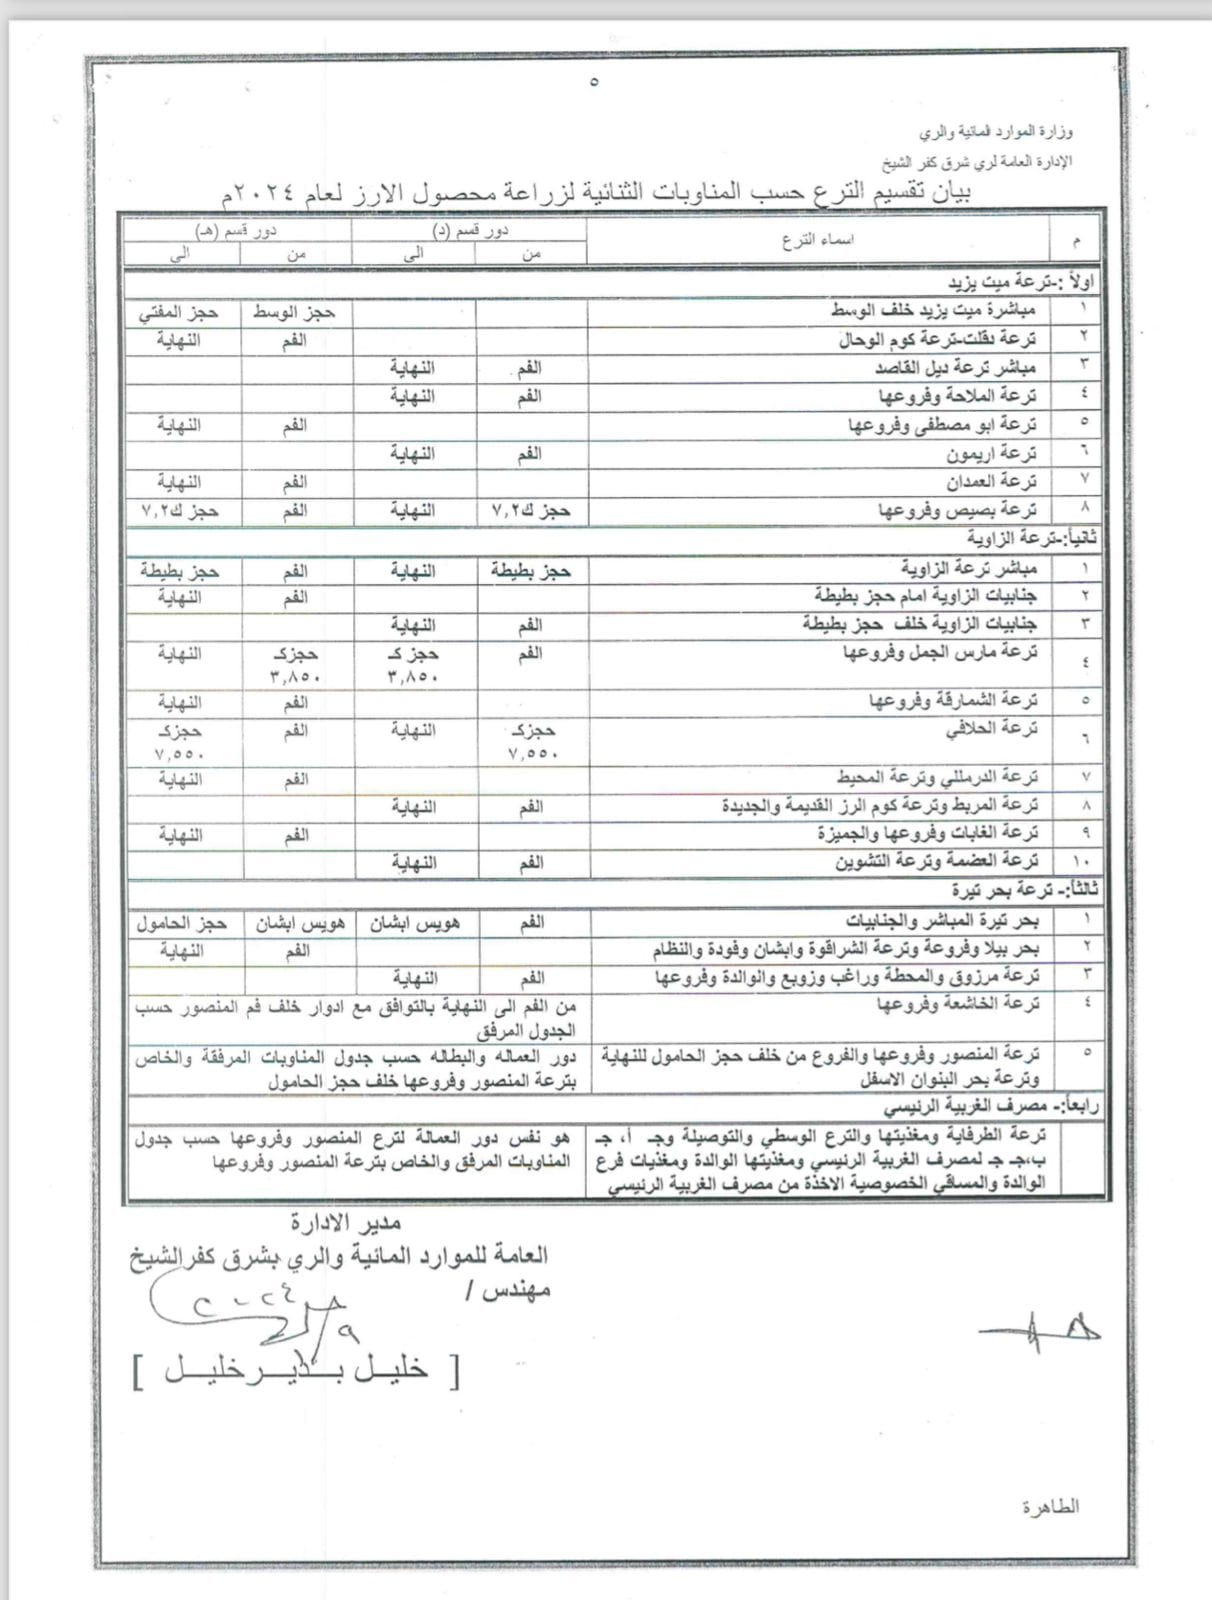 ٥
وزارة الموارد المائية والري
الإدارة العامة لري شرق كفر الشيخ
بيان تقسيم الترع حسب المناوبات الثنائية لزراعة محصول الارز لعام ٢٠٢٤م
م اسماء الترع دور قسم (د) دور قسم (هـ)
من الى من الى
اولاً :-ترعة ميت يزيد
١ مباشرة ميت يزيد خلف الوسط حجز الوسط حجز المفتي
٢ ترعة دقلت-ترعة كوم الوحال الفم النهاية
٣ مباشر ترعة ديل القاصد الفم النهاية
٤ ترعة الملاحة وفروعها الفم النهاية
٥ ترعة ابو مصطفى وفروعها الفم النهاية
٦ ترعة اريمون الفم النهاية
٧ ترعة العمدان الفم النهاية
٨ ترعة بصيص وفروعها حجز ك٧,٢ النهاية الفم حجز ك٧,٢
ثانياً:-ترعة الزاوية
١ مباشر ترعة الزاوية حجز بطيطة النهاية الفم حجز بطيطة
٢ جنابيات الزاوية امام حجز بطيطة الفم النهاية
٣ جنابيات الزاوية خلف حجز بطيطة الفم النهاية
٤ ترعة مارس الجمل وفروعها الفم حجز ك ٣,٨٥٠ حجزك ٣,٨٥٠ النهاية
٥ ترعة الشمارقة وفروعها الفم النهاية
٦ ترعة الحلافي حجزك ٧,٥٥٠ النهاية الفم حجزك ٧,٥٥٠
٧ ترعة الدرمللي وترعة المحيط الفم النهاية
٨ ترعة المربط وترعة كوم الرز القديمة والجديدة الفم النهاية
٩ ترعة الغابات وفروعها والجميزة الفم النهاية
١٠ ترعة العضمة وترعة التشوين الفم النهاية
ثالثاً:- ترعة بحر تيرة
١ بحر تيرة المباشر والجنابيات الفم هويس ابشان هويس ابشان حجز الحامول
٢ بحر بيلا وفروعة وترعة الشراقوة وابشان وفودة والنظام الفم النهاية
٣ ترعة مرزوق والمحطة وراغب وزوبع والوالدة وفروعها الفم النهاية
٤ ترعة الخاشعة وفروعها من الفم الى النهاية بالتوافق مع ادوار خلف فم المنصور حسب
الجدول المرفق
٥ ترعة المنصور وفروعها والفروع من خلف حجز الحامول للنهاية دور العماله والبطاله حسب جدول المناوبات المرفقة والخاص
وترعة بحر البنوان الاسفل بترعة المنصور وفروعها خلف حجز الحامول
رابعاً:- مصرف الغربية الرئيسي
ترعة الطرفاية ومغذيتها والترع الوسطي والتوصيلة وجـ أ، جـ هو نفس دور العمالة لترع المنصور وفروعها حسب جدول
ب،جـ جـ لمصرف الغربية الرئيسي ومغذيتها الوالدة ومغذيات فرع المناوبات المرفق والخاص بترعة المنصور وفروعها
الوالدة والمساقي الخصوصية الاخذة من مصرف الغربية الرئيسي
مدير الادارة
العامة للموارد المائية والري بشرق كفرالشيخ
مهندس /
[ خليل بدير خليل ]
الطاهرة